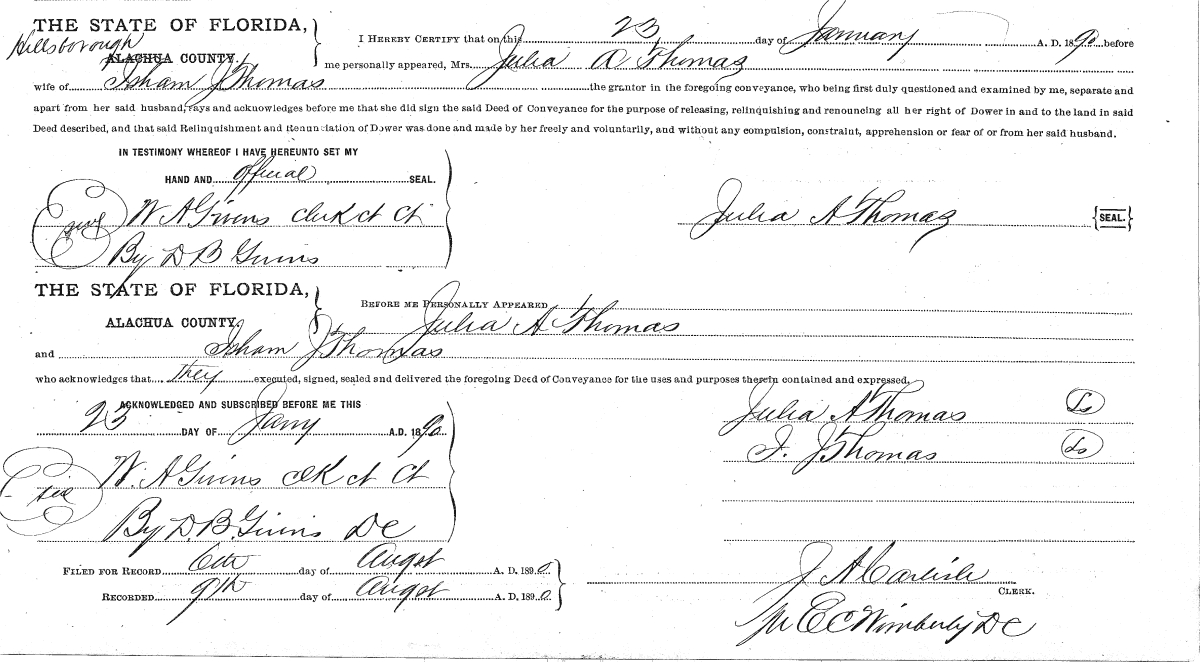 THE STATE OF FLORIDA,
Hillsborough
ALACHUA COUNTY.
I HEREBY CERTIFY that on this 23 day of January A. D. 1890 before
me personally appeared, Mrs. Julia A Thomas
wife of Isham J Thomas the grantor in the foregoing conveyance, who being first duly questioned and examined by me, separate and
apart from her said husband, says and acknowledges before me that she did sign the said Deed of Conveyance for the purpose of releasing, relinquishing and renouncing all her right of Dower in and to the land in said
Deed described, and that said Relinquishment and Renunciation of Dower was done and made by her freely and voluntarily, and without any compulsion, constraint, apprehension or fear of or from her said husband.
IN TESTIMONY WHEREOF I HAVE HEREUNTO SET MY
HAND AND official SEAL.
W. A Givens Clerk Ct Ct
Julia A Thomas {SEAL.}
By D B Givens
THE STATE OF FLORIDA,
ALACHUA COUNTY.
BEFORE ME PERSONALLY APPEARED
Julia A Thomas
and Isham J Thomas
who acknowledges that they executed, signed, sealed and delivered the foregoing Deed of Conveyance for the uses and purposes therein contained and expressed.
ACKNOWLEDGED AND SUBSCRIBED BEFORE ME THIS
23 DAY OF Jany A.D. 1890
Julia A Thomas Ls
I. J Thomas Ls
W. A Givens Clk Ct Ct
By D. B. Givens DC
FILED FOR RECORD 6th day of Augst A. D. 1890
RECORDED 9th day of Augst A. D. 1890
J A Carlisle
CLERK.
pr E C Wimberly DC